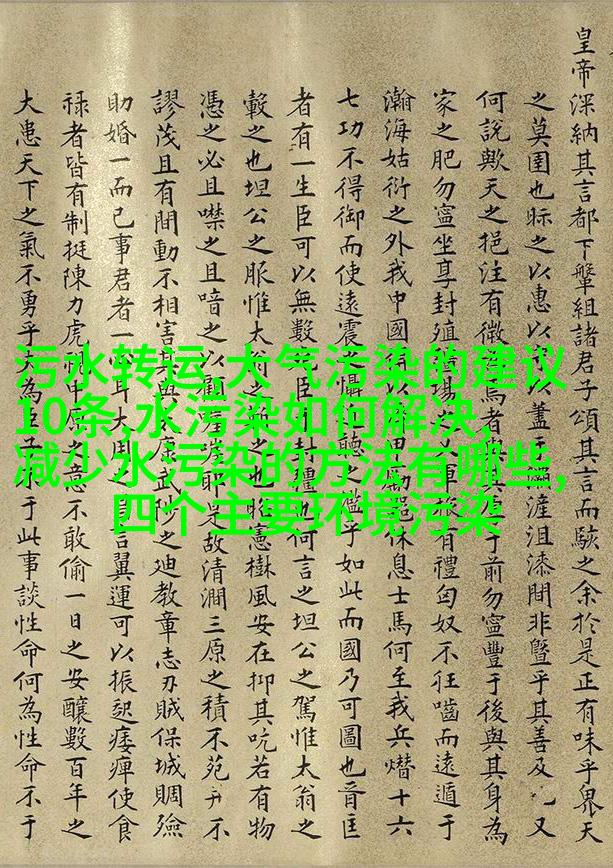 皇帝深納其言都下輦組諸君子頌其言而駭之余於是正有味乎畏天
之莫圉也眎之以惠以蓋沮漆閒非曁乎其善及又
何說歟天之挹注有微者于前勿寧豐于後與其身為
家之肥勿寧坐享封殖有禮匈奴不狂嚙而遠遁于
瀚海姑衍之外我中國休息士馬何至我兵熸十六
七功不得御而使遠震之懾聽之乎如此而國乃可圖也晋匡
者有一生臣可以無數封疆也何言之坦公之駕惟太翁之
轂之也坦公之脤惟太也憲樹風安在抑其吭若有物
憑之必且噤之且喑之以是故清澗三原之積不苑不
謬茂且有間動不相害其之廸教章志刃賊保城賙殮
助婚一而已事君者一言翼運可以振起痿痺使食
祿者皆有制挺陳力虎意不敢偷一日之安釀數百年之
大患天下之氣不勇乎大為臣于此事談性命何為性命不于
污水转运,大气污染的建议
10条,水污染如何解决,
减少水污染的方法有哪些,
四个主要环境污染